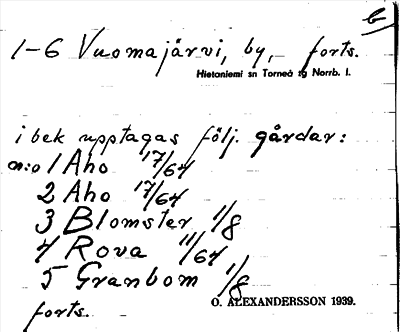 6
1-6 Vuomajärvi, by,- forts.
Hietaniemi sn Torneå tg Norrb. l.
i bek upptagas följ. gårdar:
n:o 1 Aho 17/64
2 Aho 17/64
3 Blomster 1/8
4 Rova 11/64
5 Granbom 1/8
forts.
O. ALEXANDERSSON 1939.